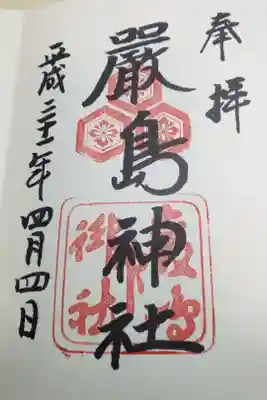 奉拝
嚴島神社
平成二十二年四月四日